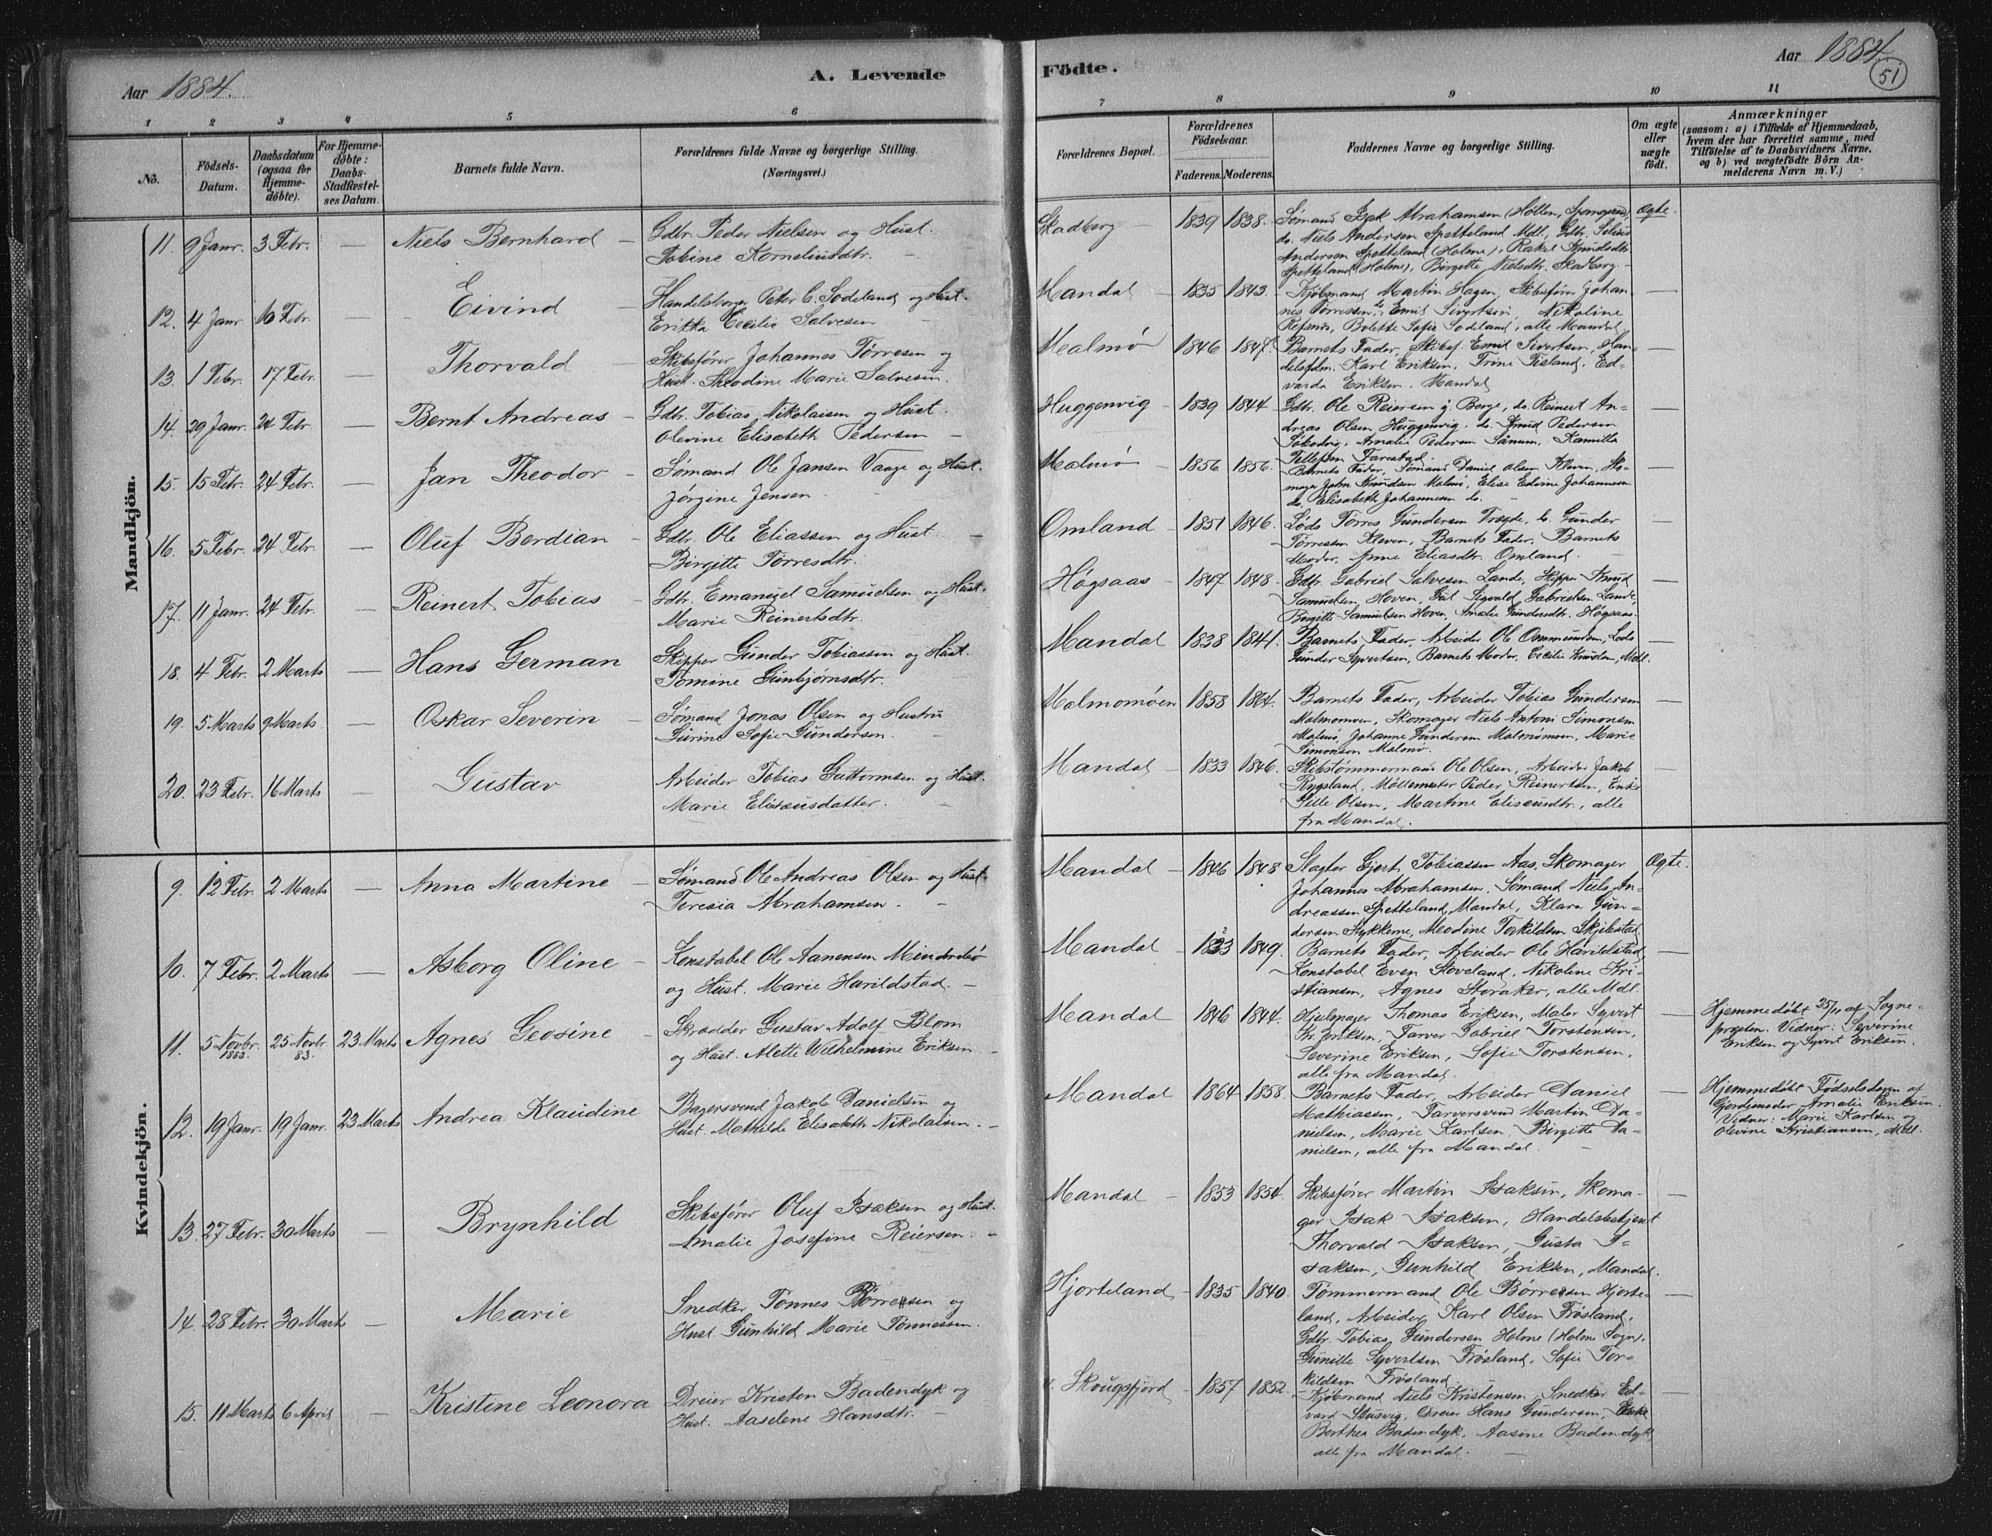 Aar 1884.
A. Levende
Födte.
Aar 1884.
51
1 2 3 4 5 6
7 8 9 10 11
No.
Födsels-
Datum.
Daabsdatum
(ogsaa for
Hjemme-
döbte).
For Hjemme-
döbte:
Daabs-
Stadfæstel-
ses Datum.
Barnets fulde Navn.
Forældrenes fulde Navne og borgerlige Stilling.
(Næringsvei.)
Forældrenes Bopæl.
Forældrenes
Födselsaar.
Faderens. Moderens.
Faddernes Navne og borgerlige Stilling.
Om ægte
eller
uægte
födt.
Anmærkninger
(saasom: a) i Tilfælde af Hjemmedaab,
hvem der har forrettet samme, med
Tilföielse af to Daabsvidners Navne,
og b) ved uægtefödte Börn An-
melderens Navn m. V.)
Mandkjön.
11. 9 Janr. 3 Febr. — Niels Bernhard —
Gdbr. Peder Nielsen og Hust.
Tobine Kornelinsdtr. —
Skadberg — 1839 1838.
Sømand Isak Abrahamsen (Holten, Spangereid)
do. Niels Andersen Spetteland Mdl, Gdbr.
Andersen Spetteland (Holme), Rakel Knudsdtr
Spetteland (Holme), Birgitte Nielsdtr. Skadberg —
Ægte
12. 4 Janr 10 Febr. — Eivind —
Handelsborger Peter C. Sødeland og Hust.
Erikka Cecilie Salvesen —
Mandal — 1835 1843.
Kjøbmand Martin Hagen, Skibsfører Johan-
nes Tørressen, do Emil Sivertsen, Nikoline
Refsnes, Bolette Sofie Sodeland, alle Mandal
—
13. 1 Febr. 17 Febr. — Thorvald —
Skibsfører Johannes Tørresen og
Hust. Theodine Marie Salvesen.
Malmø — 1846 1847.
Barnets Fader, Skibsf. Emil Sivertsen, Han-
delsfldm. Karl Eriksen, Trine Tisland, Ed-
varda Eriksen, Mandal
—
14. 29 Janr. 24 Febr. — Bernt Andreas —
Gdbr. Tobias Nikolaisen og Hust.
Olevine Elisabeth Pedersen —
Huggenvig — 1839 1844
Gdbr. Ole Reiersen Berge, do. Reinert An-
dreas Olsen Huggenvig, do. Knud Pedersen
Amalie Pedersen Sånum, Kamilla
Tellefsen Farestad.
—
15. 15 Febr. 24 Febr. — Jan Theodor —
Sømand Ole Jansen Vaage og Hust.
Jørgine Jensen. —
Malmø — 1856 1856.
Barnets Fader, Sømand Daniel Olsen Kleven, Sko-
mager John Knudsen Malmø, Elise Edvine Johannesen
do. Elisabeth Johannesen do. —
—
16. 5 Febr. 24 Febr. — Oluf Berdian —
Gdbr. Ole Eliassen og Hust —
Birgitte Tørresdtr.
Omland — 1851 1846.
Lods Tørres Gundersen Trygde, do. Gunder
Tørressen Kleven, Barnets Fader, Barnets
Moder, Anne Eliasdtr. Omland. —
—
17. 11 Janr. 24 Febr. — Reinert Tobias —
Gdbr. Emanuel Samuelsen og Hust.
Marie Reinertsdtr.
Høgsaas — 1847 1848.
Gdbr. Gabriel Salvesen Lande, Skipper Knud
Samuelsen Hoven, Sigvald Gabrielsen Lande,
Birgitte Samuelsen Hoven, Amalie Gundersdtr. Høgsaas.
—
18. 4 Febr. 2 Marts — Hans German
Skipper Gunder Tobiassen og Hust.
Tomine Gunbjørnsdtr.
Mandal — 1838 1841.
Barnets Fader, Arbeider Ole Ommundsen, Lods
Gunder Syvertsen, Barnets Moder, Cecilie Knudsen, Mdl.
—
19. 5 Marts 9 Marts — Oskar Severin —
Sømand Jonas Olsen og Hustru
Gurine Sofie Gundersen. —
Malmomøen 1858 1864.
Barnets Fader, Arbeider Tobias Gundersen
Malmomoen, Skomager Niels Antoni Simonsen
Malmø, Johanne Gundersen Malmømoen, Marie
Simonsen Malmø.
—
20. 23 Febr. 16 Marts — Gustav
Arbeider Tobias Guttormsen og Hust.
Marie Elisæusdatter. —
Mandal — 1833 1846.
Skibstømmermand Ole Olsen, Arbeider Jakob
Rysland, Møllemester Peder Reinertsen, Enke
Olsen, Martine Elisæusdtr., alle
fra Mandal.
—
Kvindekjön.
9. 12 Febr. 2 Marts — Anna Martine —
Sømand Ole Andreas Olsen og Hust.
Teresia Abrahamsen. —
Mandal — 1846 1848
Slagter Gjert Tobiassen Aas, Skomager
Johannes Abrahamsen, Sømand Niels An-
dreassen Spetteland, Mandal, Klara Gun-
dersen Stykkene, Meodine Torkildsen Skjebstad
Ægte.
10. 7 Febr. 2 Marts — Asborg Oline —
Konstabel Ole Aanensen Mindrebø
og Hust. Marie Harildstad. —
Mandal — 1833 1849.
Barnets Fader, Arbeider Ole Harildstad
Konstabel Even Stoveland, Nikoline Kri-
stiansen, Agnes Storaker, alle Mdl.
—
11. 5 Novbr. 1883. 25 Novbr 83. 23 Marts Agnes Geosine —
Skrædder Gustav Adolf Blom
og Hust. Alette Wilhelmine Eriksen. —
Mandal — 1846 1844.
Hjulmager Thomas Eriksen, Maler Syvert
Th. Eriksen, Farver Gabriel Torstensen,
Severine Eriksen, Sofie Torstensen,
alle fra Mandal.
—
Hjemmedøbt 25/11 af Sogne-
presten. Vidner: Severine
Eriksen og Syvert Eriksen.
12. 19 Janr. 19 Janr. 23 Marts Andrea Klaudine
Bagersvend Jakob Danielsen og
Hust. Mathilde Elisabeth Nikolaisen. —
Mandal — 1864 1858.
Barnets Fader, Arbeider Daniel
Mathiassen, Farversvend Martin Da-
nielsen, Marie Karlsen, Birgitte Da-
nielsen, alle fra Mandal. —
—
Hjemmedøbt Fødselsdagen af
Gjordemoder Amalie Eriksen.
Vidner: Marie Karlsen og
Olevine Kristiansen, Mdl.
13. 27 Febr. 30 Marts — Brynhild
Skibsfører Oluf Isaksen og Hust.
Amalie Josefine Reiersen. —
Mandal — 1853 1854.
Skibsfører Martin Isaksen, Skoma-
ger Isak Isaksen, Handelsbetjent
Thorvald Isaksen, Gusta I-
saksen, Gunhild Eriksen, Mandal.
—
14. 28 Febr. 30 Marts — Marie
Snedker Tønnes Børresen og
Hust. Gunhild Marie Tønnessen.
Hjorteland 1835 1840.
Tømmermand Ole Børresen Hjorte-
land, Arbeider Karl Olsen Frøsland,
Gdbr. Tobias Gundersen Holme (Holme Sogn),
Gunilte Syvertsen Frøsland, Sofie Tor-
kildsen Frøsland.
—
15. 11 Marts 6 April — Kristine Leonora
Dreier Kristen Badendyk og
Hust. Aaselene Hansdtr. —
Skougsfjord — 1857 1852.
Kjøbmand Niels Kristensen, Snedker Ed-
vard Stusvig, Dreier Hans Gundersen, Enke
Berthea Badendyk, Aasine Badendyk,
alle fra Mandal. —
—